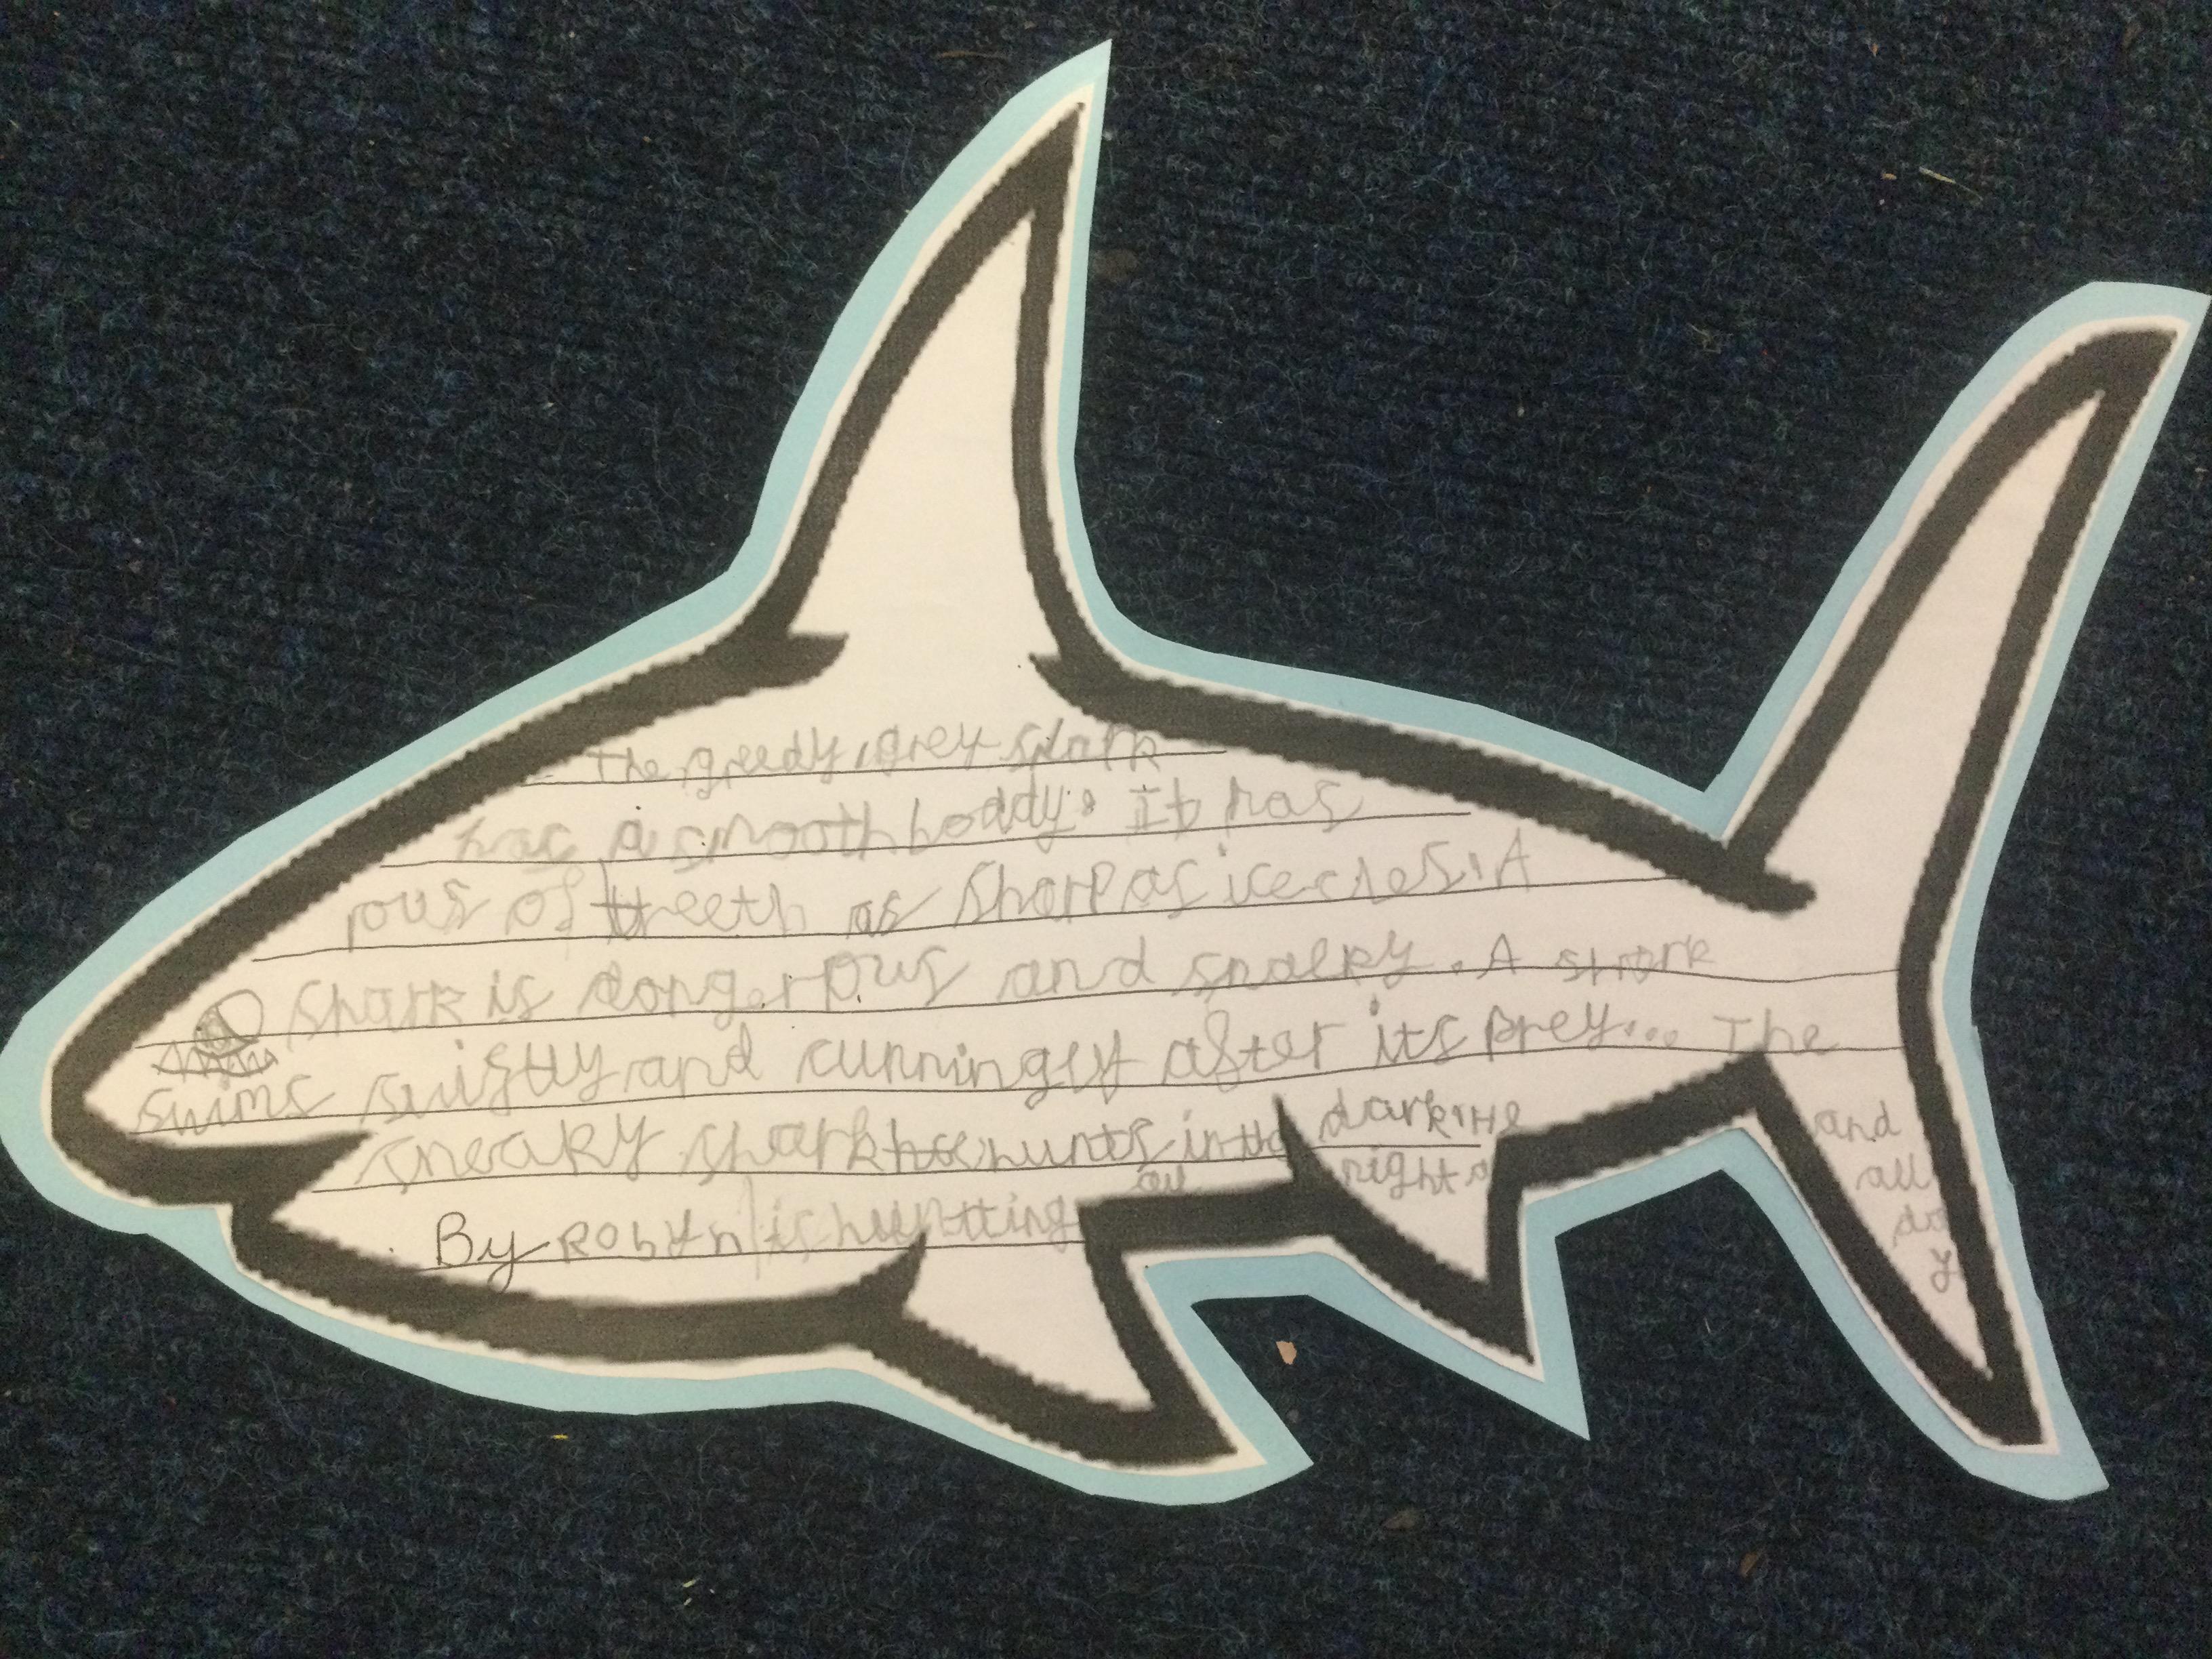 The greedy, grey shark
has a smooth boddy. It has
rous of teeth as sharp as icecles. A
shark is dangerous and snaeky. A shark
swims swiftly and cunningly after its prey... The
sneaky shark hunts in the dark. He
By Robyn is huntting all night
and
all
da
y